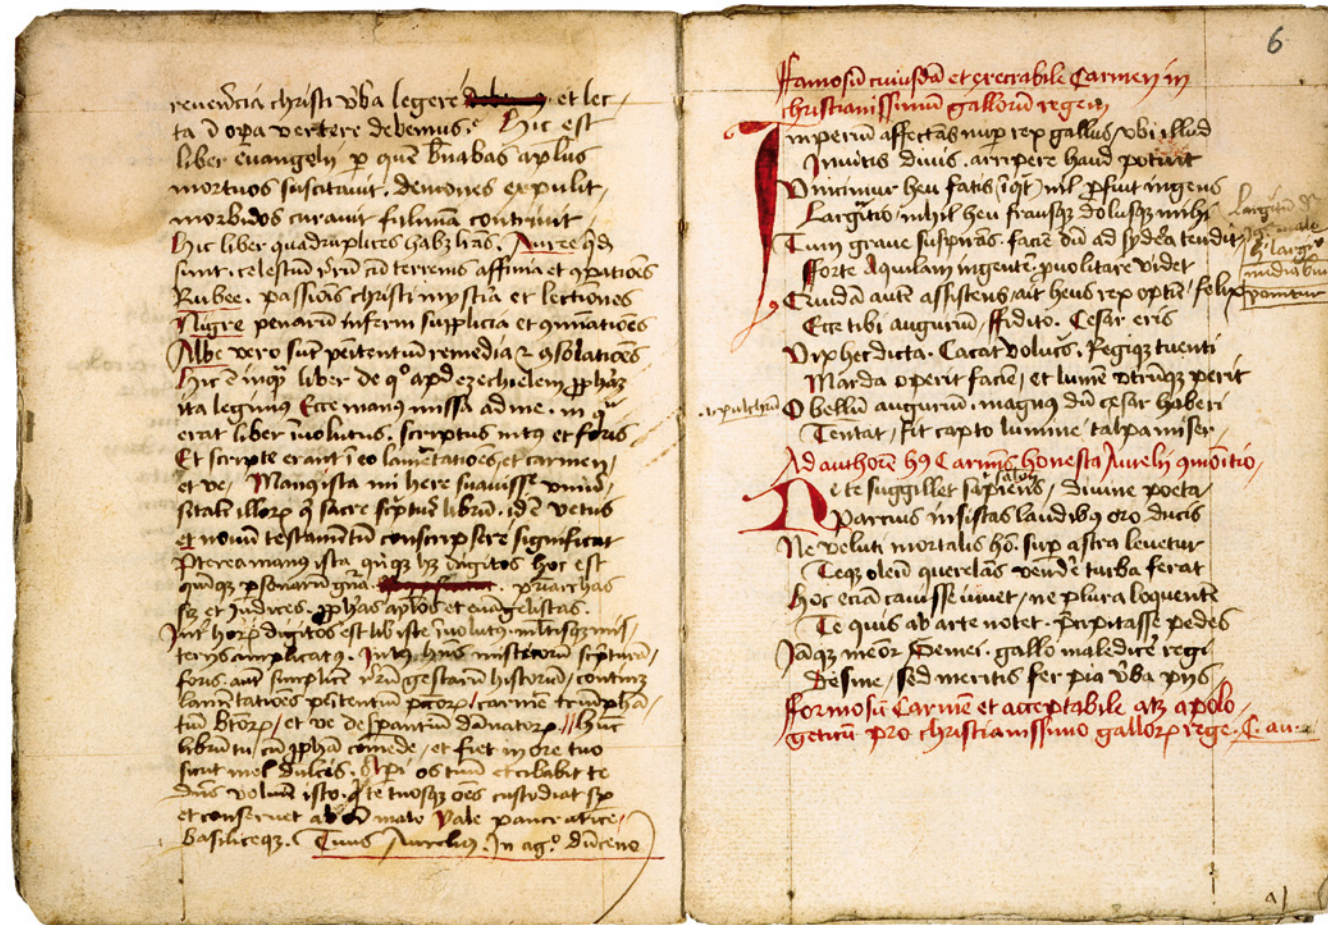 reuerẽcia christi v̄ba legere et lec,
ta ĩ opa vertere debemus. Hic est
liber euangelij p quē b̄nabas ap̄lus
mortuos suscitauit, demones expulit,
morbidos curauit fulmīa contriuit
Hic liber quadruplices habȝ l̄rās. Auree q̄dȝ
sunt. celestiū r̄rū cū terrenis affinia et 9patiōes
Rubee. passiōis christi mystīa et lectiōnes
Nigre penarū inferni supplicia et 9minatiōes
Albe vero sūt penitentiū remedia ⁊ 9solatiōes
Hic ē inqͣ liber de qº apd ezechielem ꝓphāȝ
ita legimus Ecce manꝰ missa ad me. in qͣ
erat liber īuolutus. scriptus intꝰ et foris
Et scripte erant ī eo lamētatiōes, et carmen,
et ve, Manꝰ ista mi here suauissē
illoꝝ q̄ sacre sc̄ptur̄ librū. id ē vetus
et nouū testamētū conscripsere significat
P̄terea manꝰ ista, qūqȝ hȝ digitos hoc est
quīqȝ psonarū gn̄a. pr̄iarchas
sȝ et Judices. ꝓph̄as ap̄los et euāgelistas.
Int̄ hoꝝ digitos est lib iste īuolutꝰ. ml̄tisqȝ mis,
terijs implicatꝰ. Intꝰ hn̄s misticorū sc̄pturā,
foris aūt simplicē r̄rū gestarū historiā, continȝ
lamētatiōes pn̄itentiū pc̄oꝝ, carmē triūphā,
tiū b̄toꝝ, et ve despantiū dānatoꝝ // Hūc
librū tu cū ꝓph̄a comede, et fiet in ore tuo
sicut mel dulcis. Api os tuū et cibabit te
dn̄s volūīe isto. te tuosqȝ oēs custodiat sp̄
et conseruet ab oī malo Vale pancratice,
basiliceqȝ. Tuus Aurelius. In agº dūceno
6
Ffamosū cuiusdā et execrabile Carmen in
christianissimū gallorū regem
Imperiū affectās nup rex gallus, vbi illud
Inuitis diuis. arripere haud potuit
Vincimur heu fatis (īqͥt) nil ꝓfuit ingens
Largitio, nihil heu frausqȝ dolusqȝ mihi
Tum graue suspirās. faciē dū ad sydera tendit,
fforte Aquilam ingentē ꝓuolitare videt
Cuidā autē assistens, ait heus rex optīe, felix
Ecce tibi auguriū, ffidito. Cesar eris
Vix hec dicta. Cacat volucs̄. Regiqȝ tuenti
Marda operit faciē, et lumē vtrūqȝ perit
.i. pulchrū O bellū auguriū. magnꝰ dū cesar haberi
Tentat, fit capto lumine talpa miser,
Ad authorē hꝰ Carminis honesta Aurelij 9monitio,
De te suggillet sapiens, diuine poeta,
Parcius insistas laudibꝰ oro ducis
Ne veluti mortalis hō. sup astra leuetur
Teqȝ oleū querelās vēdē turba ferat
Hoc eciā cauisse iuuet, ne plura loquentē
Te quis ab arte notet. p̄cipitasse pedes
Jāqȝ meōr Semei. gallo maledicē regi
Desine, sed meritis fer pia v̄ba pijs,
Fformosū Carmē et acceptabile atqȝ apolo,
geticū pro christianissimo galloꝝ rege. C. au.
a 1